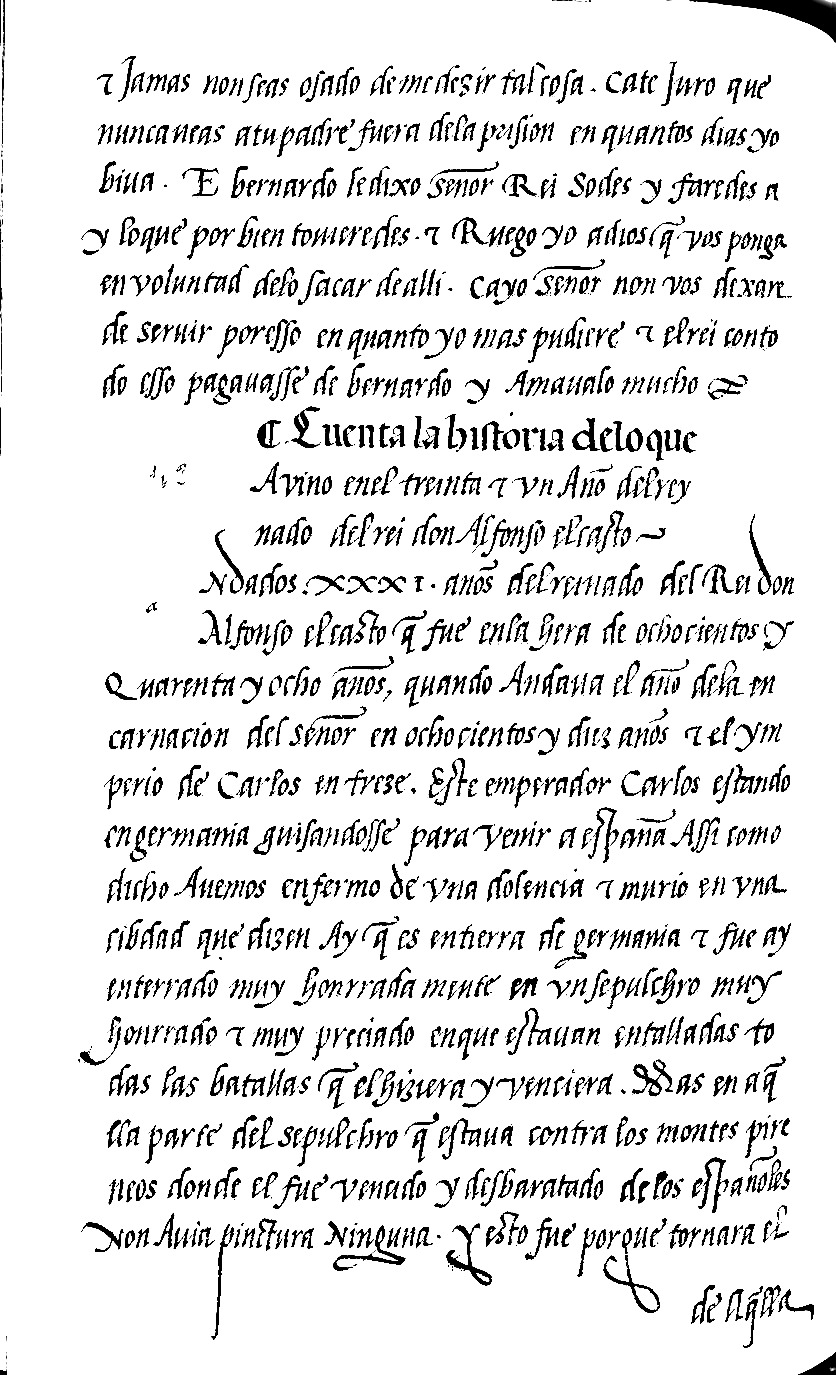 ⁊ Jamas non seas osado de me dezir tal cosa. Cate Juro que
nunca ueas a tu padre fuera dela prision en quantos dias yo
biua. E bernardo le dixo señor Rei Sodes y faredes a
y loque por bien touieredes. ⁊ Ruego yo a dios q̃ vos ponga
en voluntad delo sacar de alli. Ca yo Señor non vos dexare
de seruir poresso en quanto yo mas pudiere ⁊ el rei conto
do esso pagauasse de bernardo y Amaualo mucho
¶ Cuenta la historia deloque
Avino enel treinta ⁊ vn Año del rey
nado del rei don Alfonso el casto~
Ndados .XXXI. años del reinado del Rei don
a
Alfonso el casto q̃ fue en la hera de ochocientos y
Quarenta y ocho años, quando Andaua el año dela en
carnacion del señor en ochocientos y diez años ⁊ el ym
perio de Carlos en treze. Este emperador Carlos estando
en germania guisandosse para venir a españa Assi como
dicho Auemos enfermo de vna dolencia ⁊ murio en vna
cibdad que dizen Ay q̃ es en tierra de germania ⁊ fue ay
enterrado muy honrrada mente en vn sepulchro muy
honrrado ⁊ muy preciado enque estauan entalladas to
das las batallas q̃ el hiziera y venciera. Mas en aq̃
lla parte del sepulchro q̃ estaua contra los montes pire
neos donde el fue vencido y desbaratado de los españoles
Non Auia pinctura Ninguna. Y esto fue porque tornara el
de Aq̃lla